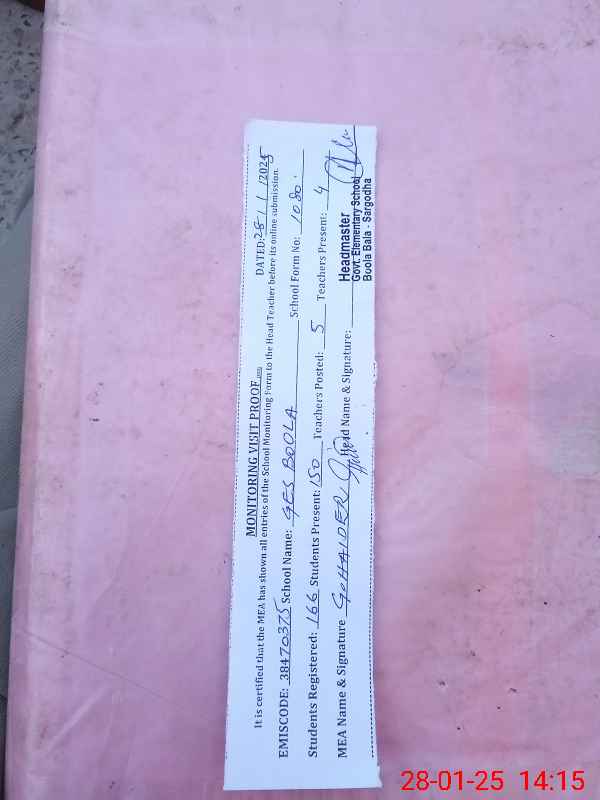 MONITORING VISIT PROOF
DATED: 28/1/2025
It is certified that the MEA has shown all entries of the School Monitoring Form to the Head Teacher before its online submission.
EMISCODE: 38470375 School Name: GES BOOLA School Form No: 1080
Students Registered: 166 Students Present: 150 Teachers Posted: 5 Teachers Present: 4
MEA Name & Signature G. HAIDER Head Name & Signature:
Headmaster
Govt. Elementary School
Boola Bala - Sargodha
28-01-25 14:15